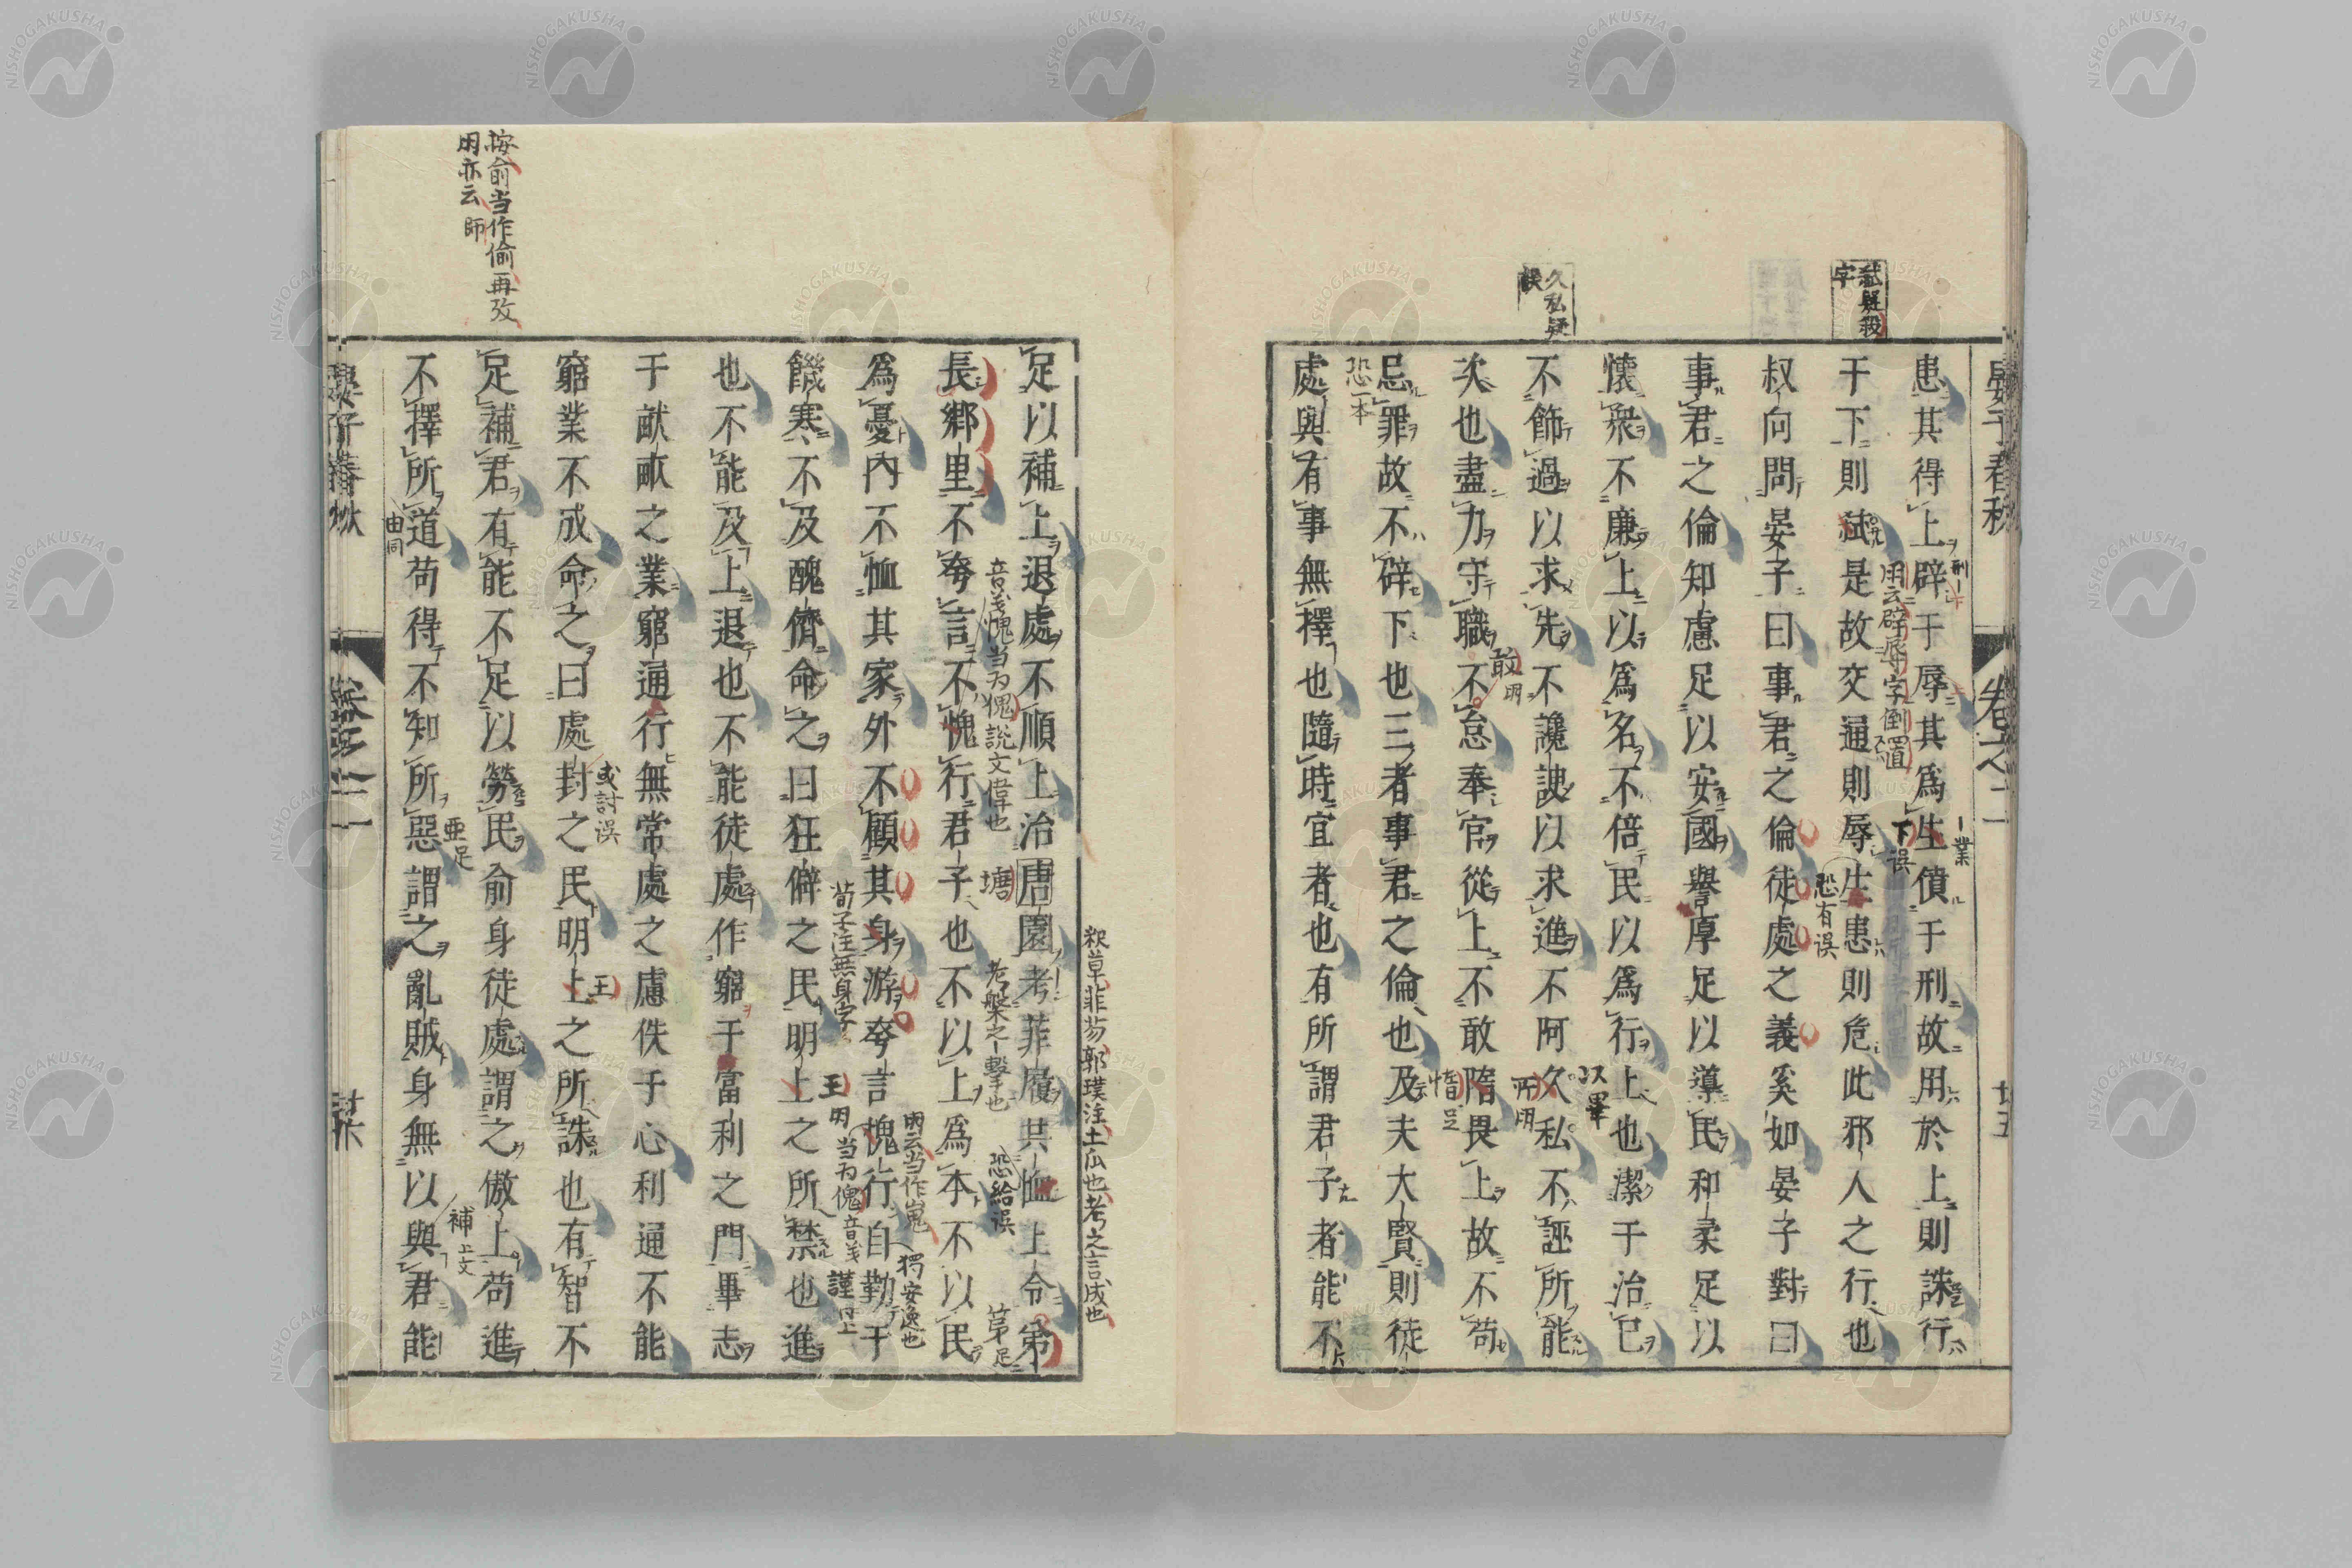 晏子春秋
卷之二
患其得上辟于辱其爲生僨于刑故用於上則誅行
于下則弑是故交通則辱生患則危此邪人之行也
叔向問晏子曰事君之倫徒處之義奚如晏子對曰
事君之倫知慮足以安國譽厚足以導民和柔足以
懷衆不廉上以爲名不倍民以爲行上也潔于治已
不飾過以求先不讒諛以求進不阿久私不誣所能
次也盡力守職不怠奉官從上不敢隋畏上故不苟
忌罪故不辟下也三者事君之倫也及夫大賢則徒
處與有事無擇也隨時宜者也有所謂君子者能不
弑疑殺字
久私疑誤
用云辟辱字倒置
下誤
恐有誤
敢明
以畢
所明
惰足
恐一本
足以補上退處不順上治唐園考菲履共恤上令第
長鄉里不夸言不愧行君子也不以上爲本不以民
爲憂內不恤其家外不顧其身游夸言愧行自勤于
饑寒不及醜儕命之曰狂僻之民明上之所禁也進
也不能及上退也不能徒處作窮于富利之門畢志
于畎畝之業窮通行無常處之慮佚于心利通不能
窮業不成命之曰處封之民明上之所誅也有智不
足補君有能不足以勞民俞身徒處謂之傲上苟進
不擇所道苟得不知所惡謂之亂賊身無以與君能
釈草菲芴郭璞注土瓜也考之言成也
音義愧当为媿説文偉也
塘
考槃之一擊也
恐給誤
第足
荀子注無身字
王明
当为傀音義
用云当作嵬
獨安逸也
謹同上
或討誤
王
按俞当作偷再攷
用亦云師
亜足
補上文
由同
晏子春秋
卷之二